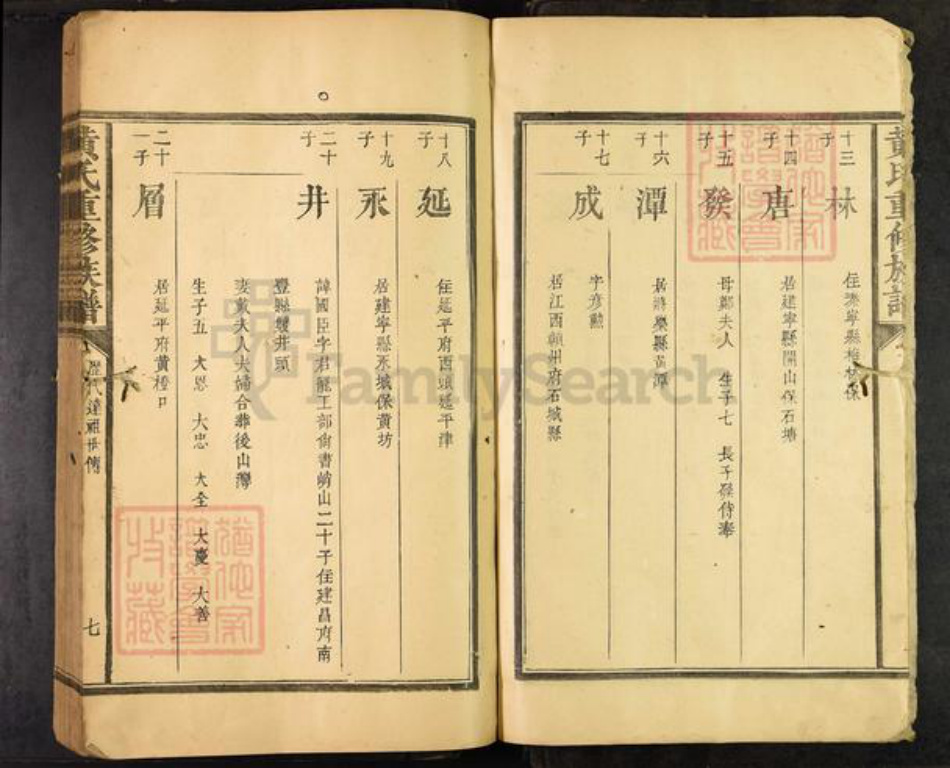 黃氏重修族譜
十三子
林
住濂寧縣
十四子
唐
居建寧縣開山保石塘
十五子
發
母鄭夫人 生子七 長子 侍奉
十六子
潭
居將樂縣黃潭
十七子
成
字彥勳
居江西贛州府石城縣
十八子
延
住延平府西頭延平津
十九子
永
居建寧縣永城保黃坊
二十子
井
諱國臣字君龍工部尙書峭山二十子住建昌府南
豐縣雙井頭
妻戴夫人夫婦合葬後山灣
生子五 大恩 大忠 大全 大慶 大善
二十一子
層
居延平府黃橙口
黃氏重修族譜
歷代達祖世傳
七
FamilySearch